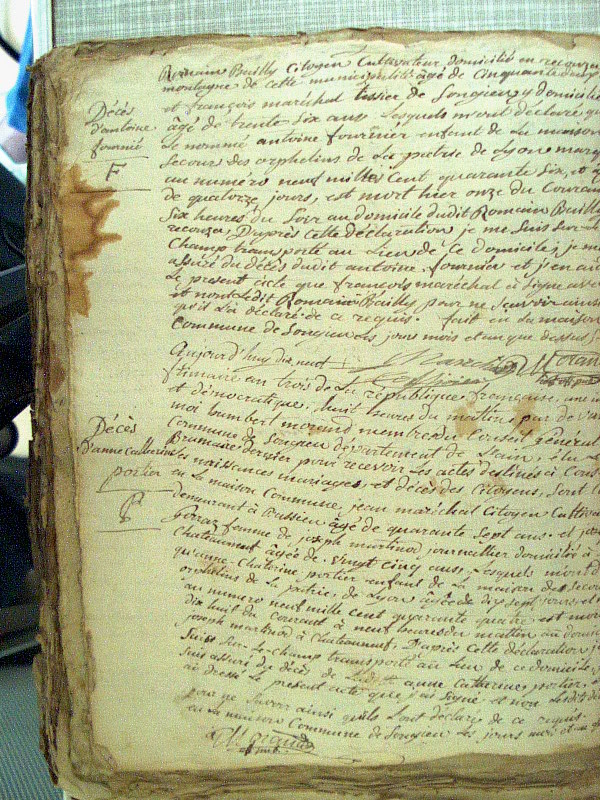 Romain Bailly Citoyen Cultivateur domicilié en reconza
montagne de cette municipalité âgé de Cinquante
et françois maréchal tissier de Songieu y domicilié
Décès
d'antoine
fournié
F
âgé de trente Six ans Lesquels m'ont déclaré qu
Le nommé antoine fournier enfant de La maison
secours des orphelins de La patrie de Lyon marq
au numéro neuf mille Cent quarante Six, et
de quatorze jours, est mort hier onze du Courant
Six heures du Soir au domicile dudit Romain Bailly
reconza, D'après Cette déclaration je me suis Sur Le
Champ transporté au Lieu de Ce domicile, je me
assuré du décès dudit antoine fournier et j'en ai
Le présent acte que françois maréchal à Signé avec
et non Ledit Romain Bailly pour ne Savoir ainsi
qu'il L'a déclaré de ce requis. fait en La maison
Commune de Songieu les jours mois et an que dessus
Aujourd'huy dix neuf
frimaire an trois de La république française, une in
et démocratique, huit heures du matin, par devant
moi humbert morand membre du Conseil général
Commune de Songieu département de L'ain, élu
Brumaire dernier pour recevoir Les actes destinés à Cons
Décès
D'anne Catherine
portier
P
Les naissances mariages, et décès des Citoyens, Sont
en La maison Commune, jean maréchal Citoyen Cultivat
demeurant à Bassieu âgé de quarante Sept ans, et
femme de joseph martinod journellier domicilié à
Chateauneuf âgée de vingt Cinq ans, Lesquels m'ont d
qu'anne Chaterine portier enfant de La maison des Secou
orphelins de La patrie, de Lyon âgée de dix sept jours, et
au numéro neuf mille Cent quarante quatre est mor
dix huit du Courant à neuf heures du matin au domi
joseph martinod à Chateauneuf. D'après Cette déclaration j
Suis Sur-Le-champ transporté au Lieu de ce domicile
Suis assuré du décès de Ladite anne Catherine portier,
ai dressé Le présent acte que j'ai Signé et non Lesdits
pour ne Savoir ainsi qu'ils L'ont déclaré de ce requis.
en La maison Commune de Songieu Les jours mois et an